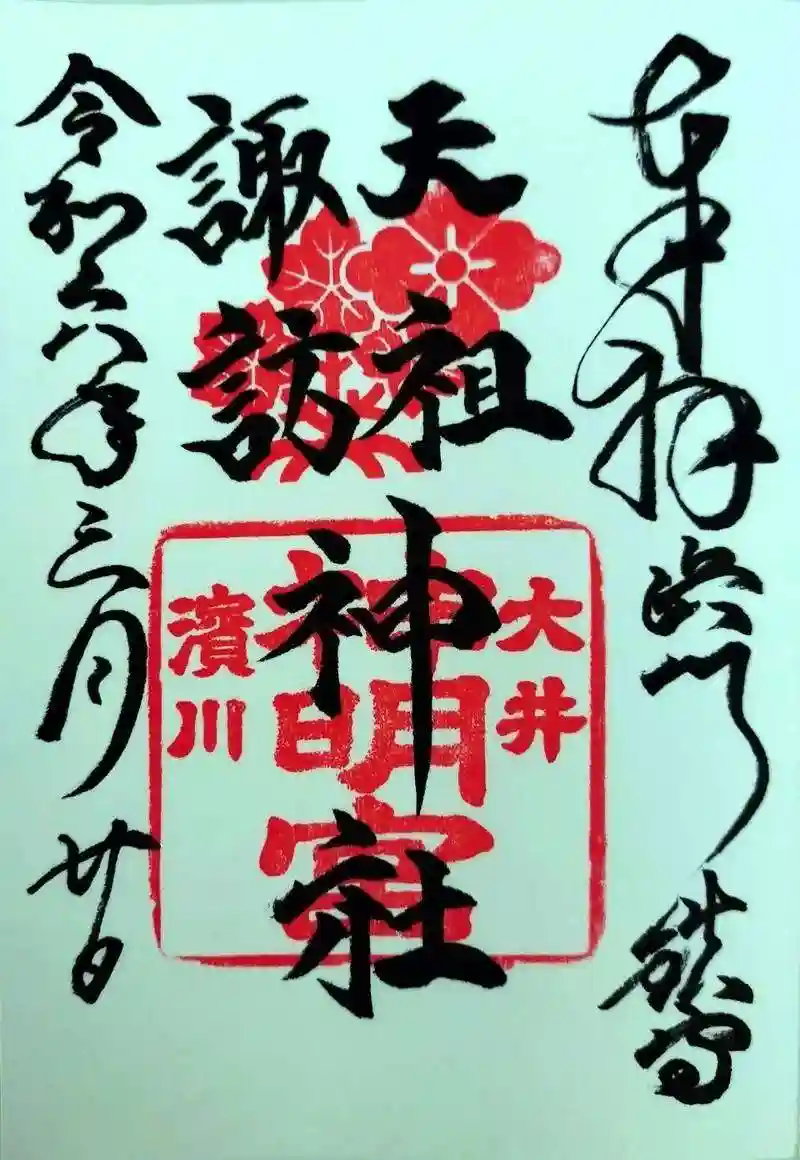 奉拝
天祖
諏訪
神社
令和六年三月廿日
大井
神明宮
濱川